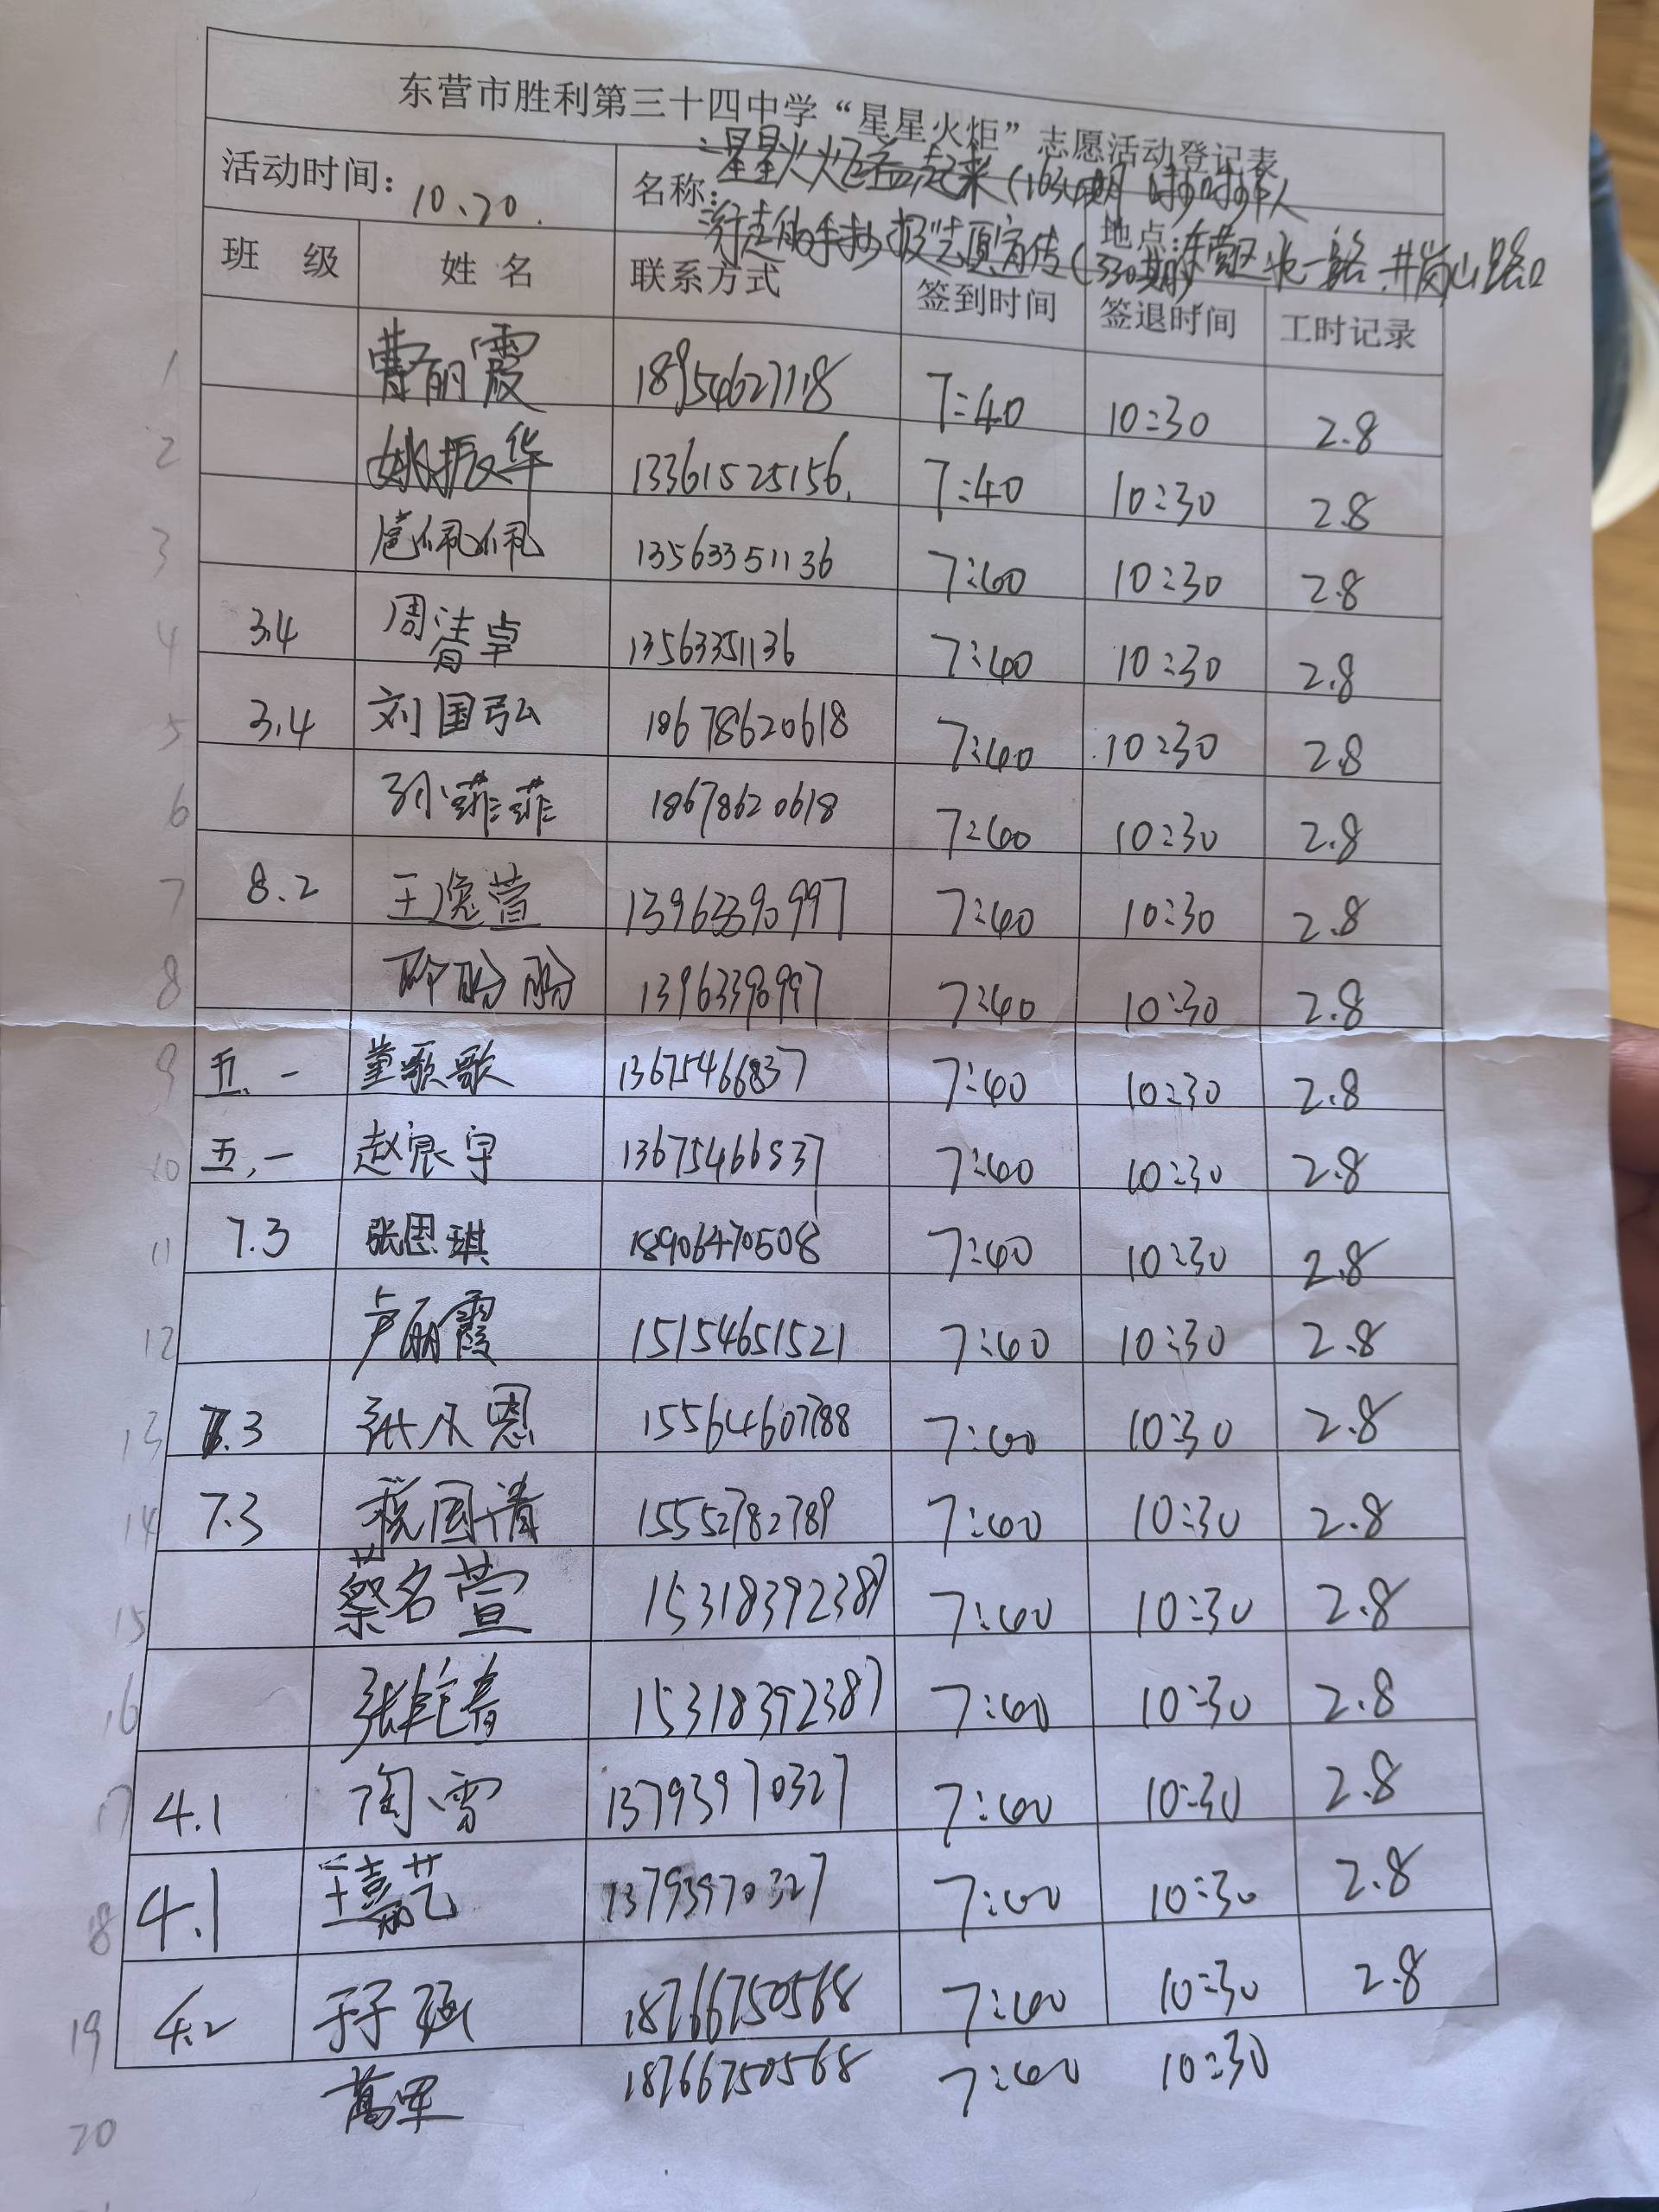 东营市胜利第三十四中学“星星火炬”志愿活动登记表
活动时间：10、20. 名称：星星火炬益起来（ 期
行走的手抄报志愿宣传（330期） 地点：东营区北一路井岗山路口
班 级 姓 名 联系方式 签到时间 签退时间 工时记录
1 曹丽霞 18954627118 7:40 10:30 2.8
2 姚振华 13361525156. 7:40 10:30 2.8
3 扈佩佩 13563351136 7:40 10:30 2.8
4 3.4 周清卓 13563351136 7:40 10:30 2.8
5 3.4 刘国弘 18678620618 7:40 10:30 2.8
6 孙菲菲 18678620618 7:40 10:30 2.8
7 8.2 王逸萱 13963390997 7:40 10:30 2.8
8 13963390997 7:40 10:30 2.8
9 五.一 董歌歌 13675466837 7:40 10:30 2.8
10 五.一 赵宸宇 13675466837 7:40 10:30 2.8
11 7.3 张思琪 18906470508 7:40 10:30 2.8
12 卢丽霞 15154651521 7:40 10:30 2.8
13 7.3 15564607788 7:40 10:30 2.8
14 7.3 税国清 15552782789 7:40 10:30 2.8
15 蔡名萱 15318392387 7:40 10:30 2.8
16 15318392387 7:40 10:30 2.8
17 4.1 陶雪 13793970327 7:40 10:30 2.8
18 4.1 王嘉艺 13793970327 7:40 10:30 2.8
19 4.2 于子涵 18766750568 7:40 10:30 2.8
20 万军 18766750568 7:40 10:30